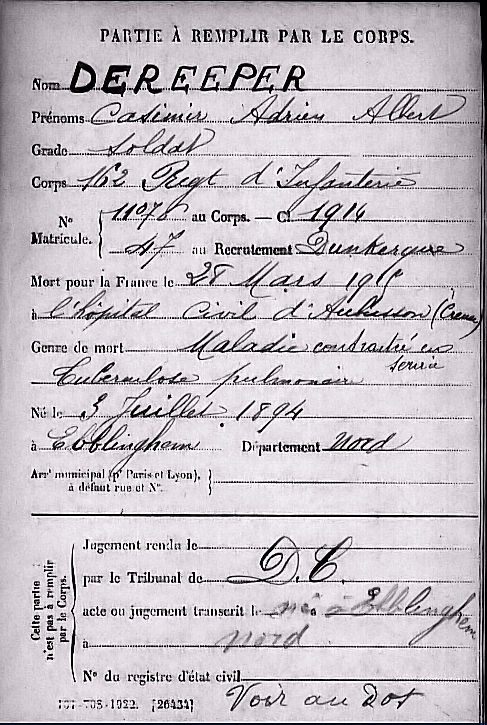 PARTIE À REMPLIR PAR LE CORPS.
Nom DEREEPER
Prénoms Casimir Adrien Albert
Grade Soldat
Corps 162 Regt d'Infanterie
N° Matricule. { 11078 au Corps. — Cl. 1914
47 au Recrutement Dunkerque
Mort pour la France le 28 Mars 1915
à l'hôpital Civil d'Aubusson (Creuse)
Genre de mort Maladie contractée en
service
Tuberculose pulmonaire
Né le 3 Juillet 1894
à Ebblinghem Département Nord
Arrt municipal (pr Paris et Lyon),
à défaut rue et N°.
Cette partie n'est pas à remplir par le Corps.
Jugement rendu le
par le Tribunal de D.C.
acte ou jugement transcrit le né à Ebblinghem
à Nord
N° du registre d'état civil
Voir au dos
-708-1922. [26434]